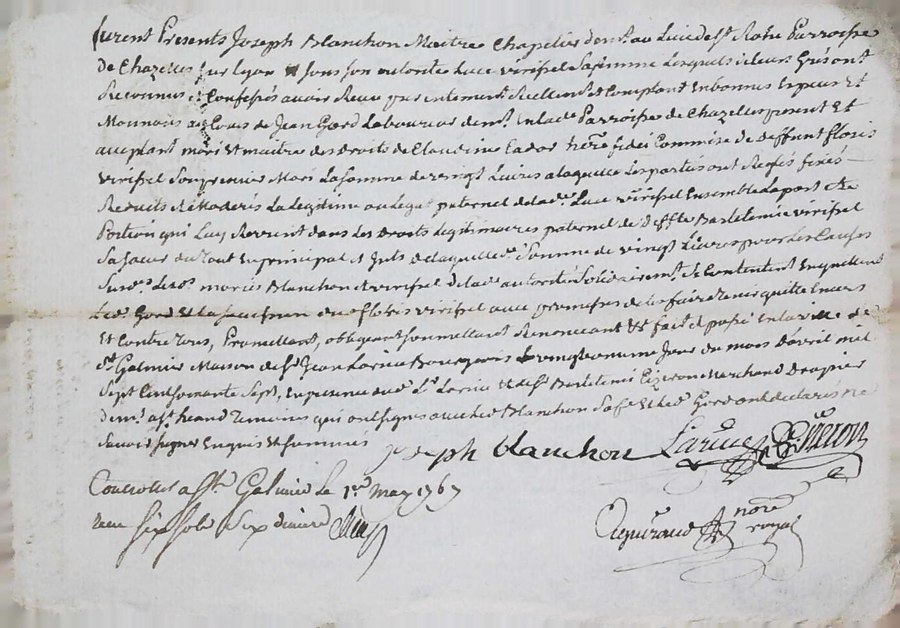 furent Presents Joseph Blanchon Maitre Chapelier dem.t au Lieu de s.t Roche Parroisse
de Chazelles sur Lyon Sous son autorité Luce virissel sa femme Lesquels de leur Gré ont
Reconnus et Confessés avoir Receu presentement Reellem.t et Comptant En bonnes Especes Et
Monnoies au Cours de Jean Gord Laboureur dem.t En lad.e Parroisse de Chazelles present Et
acceptant mari et maitre des droits de Claudine heritiere fidei Commise de deffunt floris
virissel Son premier Mari La somme de vingt Livres a laquelle Les parties ont Reglés fixés
Reduits Et Moderés La Legitime ou Legat paternel de lad.e Luce virissel Ensemble La part Et
Portion qui Luy Revient dans Les Droits Legitimaires paternel de Barlelemie virissel
sa soeur du tout En principal et de laquelle d.e Somme de vingt Livres pour Les Causes
Lesd.s mariés Blanchon et virissel Solidairem.t Se Contentent En quittent
Led. Gord Et la succession dud floris virissel avec promesse de Les faire tenir quitte Envers
Et Contre tous, Promettant, obligeant soumettant Renonceant &c fait et passé En la ville de
s.t Galmier Maison de s.r Jean Larue Bourgeois Le vingt onzieme Jour du mois d'avril mil
sept Cent soixante sept, En presence dud. s.r Larue Et de s.r Bartelemi Marchand
dem.t temoins qui ont signés avec led Blanchon Sa f.e Et led Gord ont declarés Ne
savoir signer Enquis Et sommés
joseph blanchon Larue
Controllé a s.t Galmier Le 1.er May 1767
Receu six sols six deniers
nore
royal